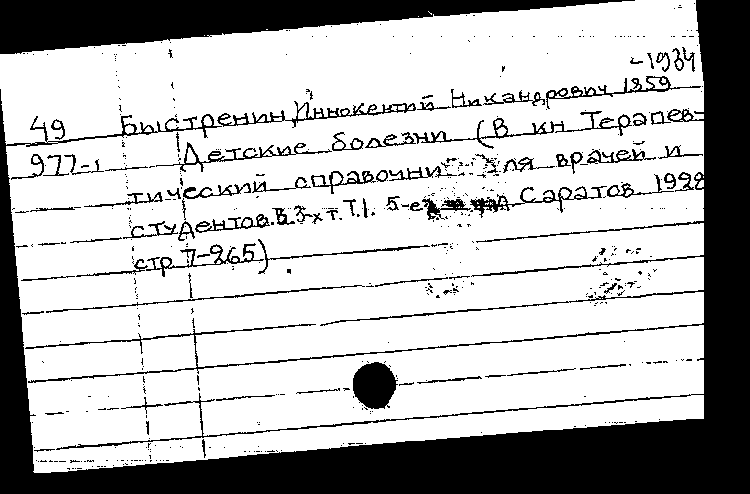 -1934
49 Быстренин, Иннокентий Никандрович, 1859
977-1 Детские болезни (В кн Терапев-
тический справочник для врачей и
студентов. В 3-х т. Т.1. 5-е изд Саратов 1928
стр 7-265).